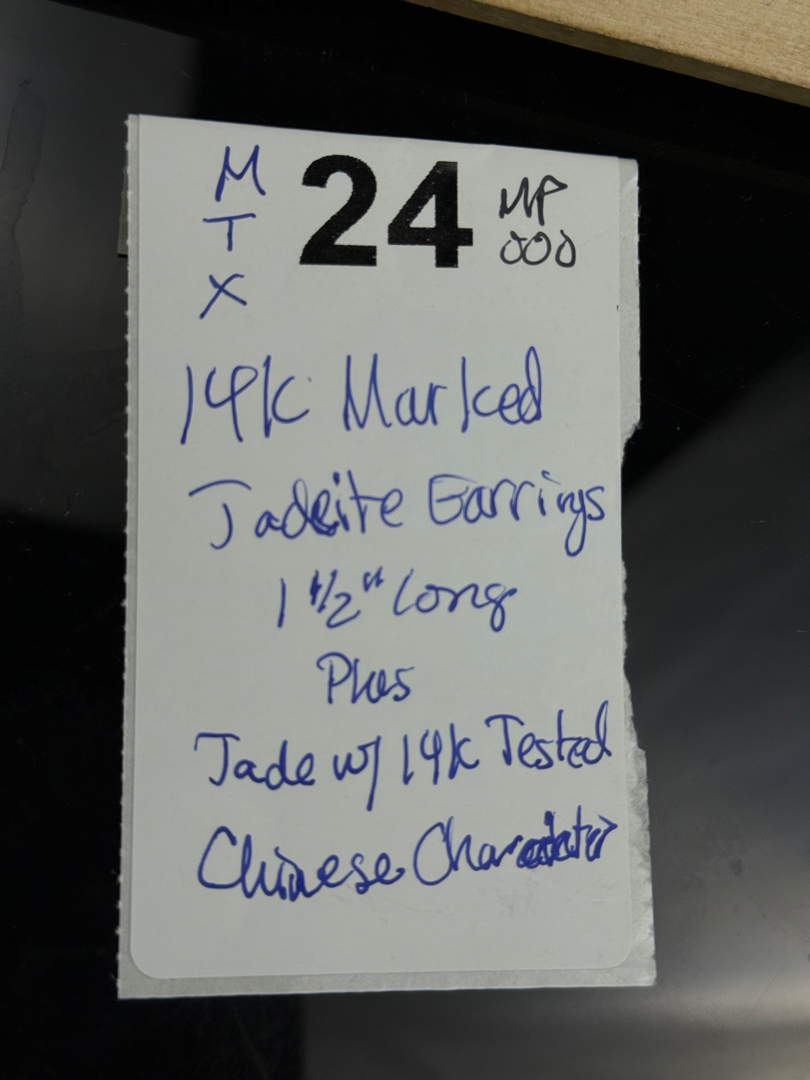 M
T
X
24
MP
000
14k Marked
Jadeite Earrings
1 1/2" long
Plus
Jade w/ 14k Tested
Chinese Character